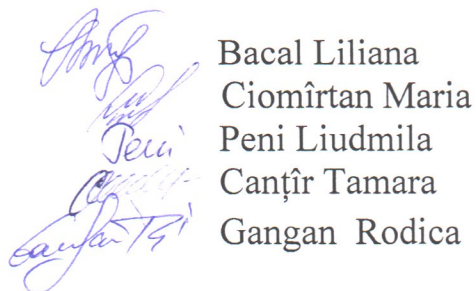 Bacal Liliana
Ciomîrtan Maria
Peni Peni Liudmila
Canțîr Tamara
Gangan Rodica